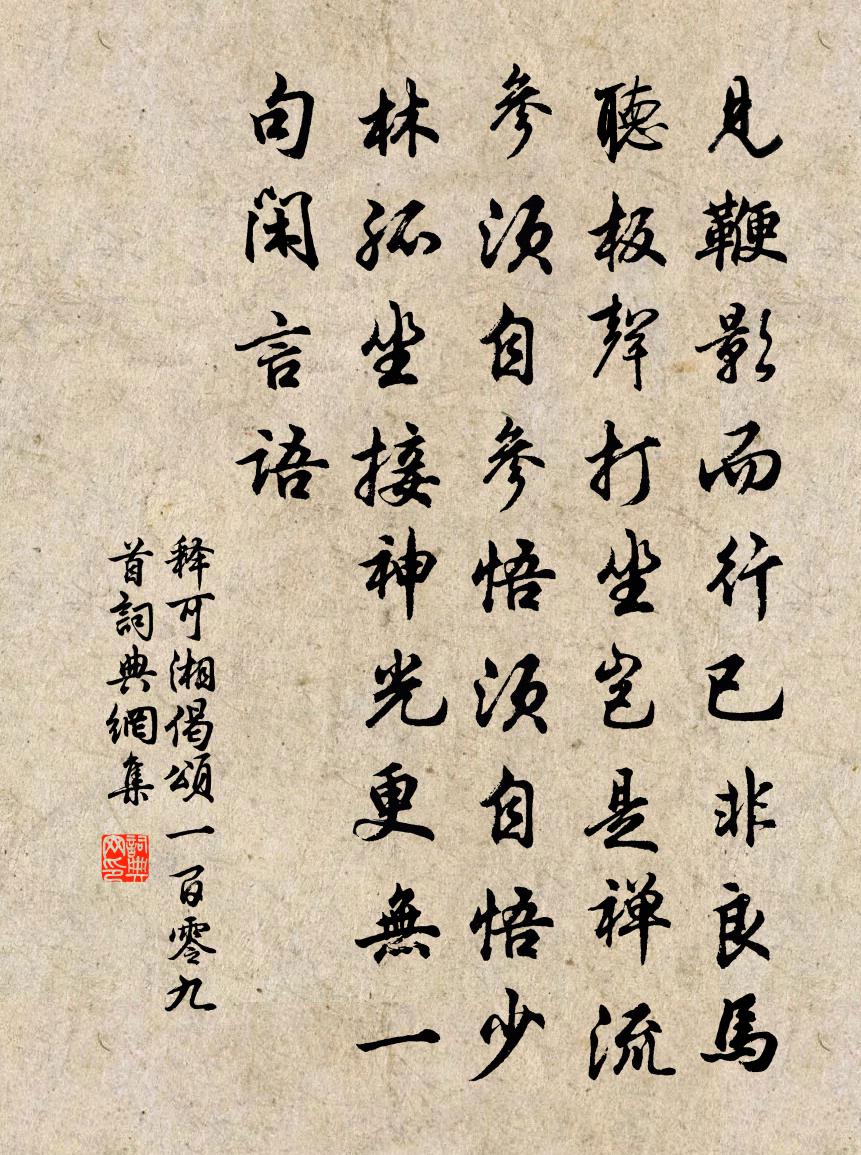 見鞭影而行已非良馬
聽板聲打坐豈是禅流
參須自參悟須自悟少
林孤坐接神光更無一
句閑言語
释可湘偈頌一百零九
首詞典網集
詞典
网印